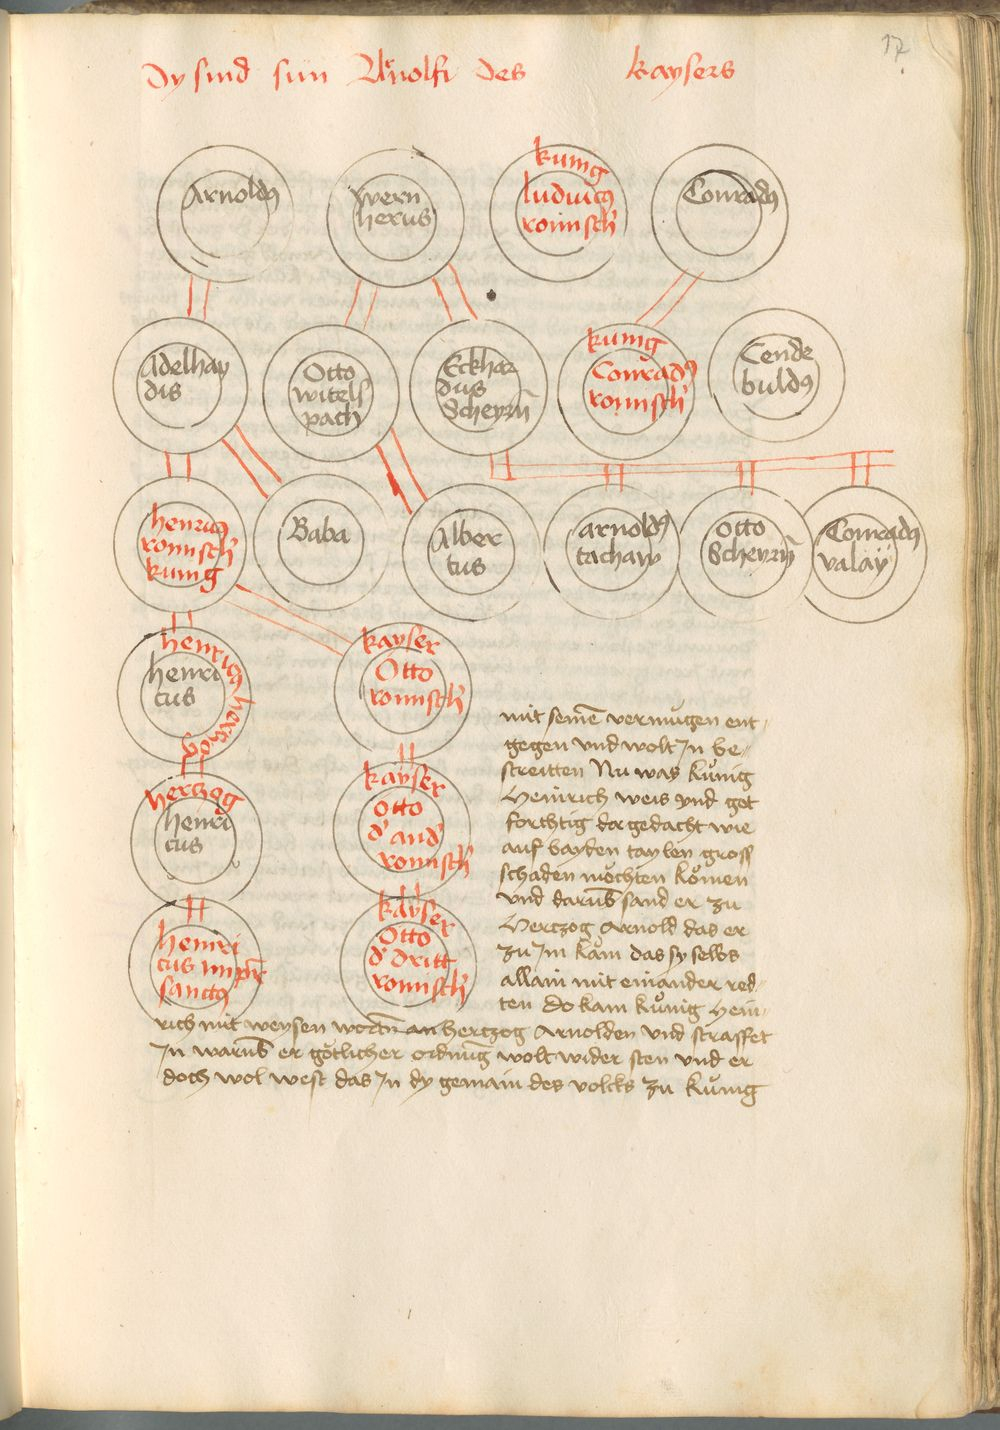 17
Dy sind sün Arnolfi des kaysers
Arnoldꝯ
wern
herus
kunig
ludwicꝯ
romisch'
Conradꝯ
Adelhay
dis
Otto
witels
pach
Eckhar
dus
Scheyrn̄
kunig
Conradꝯ
romisch'
Cende
buldꝯ
henricꝯ
romisch'
kunig
Baba
Alber
tus
arnoldꝯ
tachaw
otto
Scheyrn̄
Conradꝯ
valaÿ
henricꝯ herczog
henri
cus
kayser
Otto
romisch'
hertzog
henri
cus
kayser
otto
d' and'
romisch'
henri
cus imp̄r
sanctꝯ
kayser
Otto
d' dritt
romisch'
mit seinē vermůgen ent
gegen vnd wolt Jn be
streitten Nu was Kůnig
Heinrich weis vnd got
forchtig der gedacht wie
auf bayden taylen gross
schaden möchten komen
vnd darūb sand er zu
Hertzog Arnold das er
zu Jm kam das sy selbs
allain mit einander red
ten do kam kůnig Hein
rich mit weysen wortn̄ an hertzog Arnolden vnd straffet
Jn warūb er götlicher ordnūg wolt wider sten vnd er
doch wol west das Jn dy gemain des volcks zu Kůnig